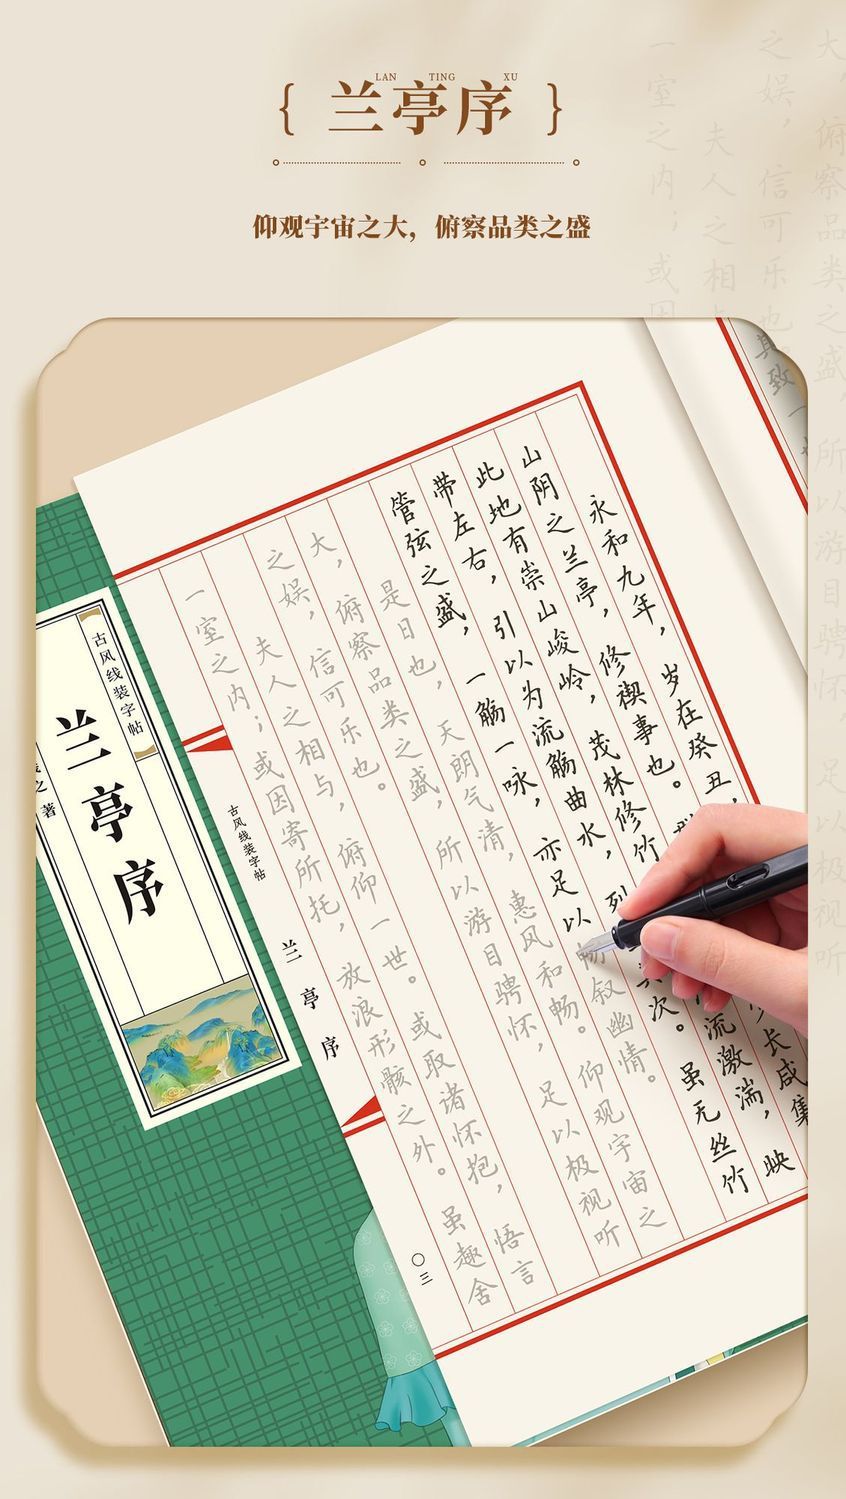 LAN TING XU
{ 兰亭序 }
仰观宇宙之大，俯察品类之盛
大，俯察品类之盛，所以游目骋怀，足以极视听
之娱，信可乐也
夫人之相
一室之内；或因
其致一
永和九年，岁在癸丑，
山阴之兰亭，修禊事也。少长咸集
此地有崇山峻岭，茂林修竹流激湍，映
带左右，引以为流觞曲水，列其次。虽无丝竹
管弦之盛，一觞一咏，亦足以畅叙幽情。
是日也，天朗气清，惠风和畅。仰观宇宙之
大，俯察品类之盛，所以游目骋怀，足以极视听
之娱，信可乐也。
夫人之相与，俯仰一世。或取诸怀抱，悟言
一室之内；或因寄所托，放浪形骸之外。虽趣舍
古风线装字帖
兰亭序
〇三
古风线装字帖
兰亭序
之 著